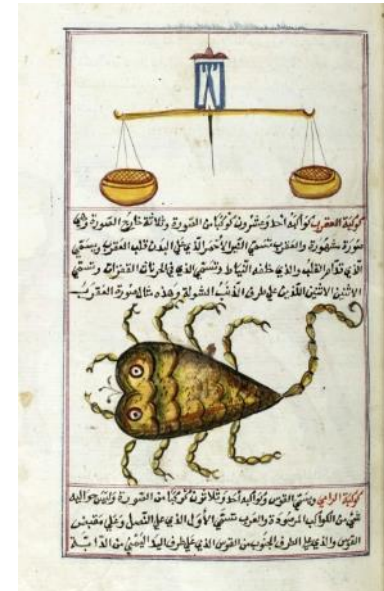 كوكبة العقرب كواكبه احد وعشرون كوكبًا من الصورة وثلاثة خارج الصورة وهى
صورة مشهورة والعرب تسمى النير الأحمر الذي على البدن قلب العقرب ويسمى
الذي قدام القلب والذي خلفه النياط وتسمى الذي فى الخرزات الفقرات وتسمى
الاثنين اللذين على طرف الذنب الشولة وهذه مثال صورة العقرب
كوكبة الرامي ويسمى القوس وكواكبه احد وثلاثونه كوكبًا من الصورة وليس حواليه
شئ من الكواكب المرصودة والعرب تسمى الأول الذي على النصل وعلى مقبض
القوس والذي على الطرف الجنوب من القوس الذي على طرف اليد اليمنى من الدابة